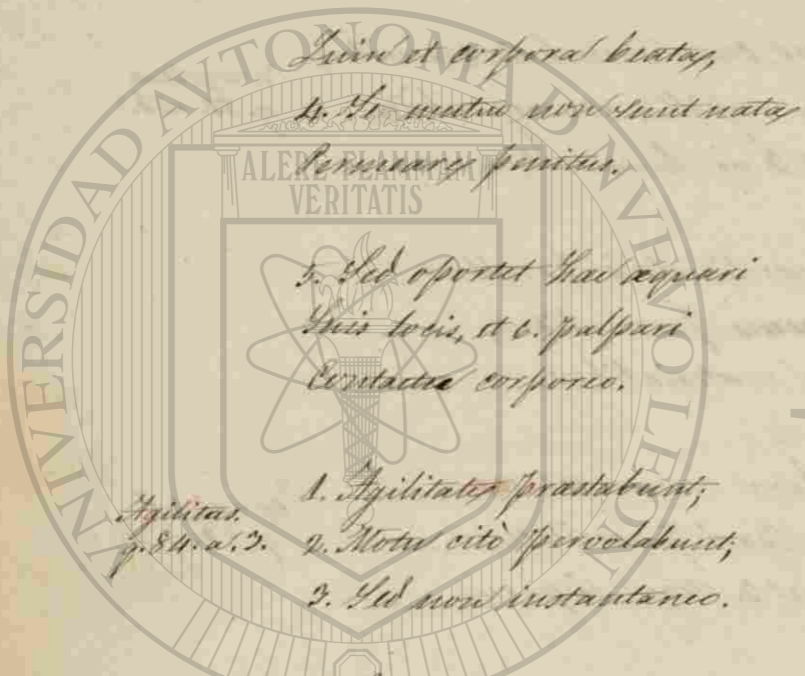 Quin et corpora beata,
4. Se mutuo non sunt nata
Permeare penitus.
5. Sed oportet haec aequari
Suis locis, et 6. palpari
Contactu corporeo.
Agilitas.
q. 84. a. 3.
1. Agilitate praestabunt;
2. Motu citò pervolabunt;
3. Sed non instantaneo.
UNIVERSIDAD AVTONOMA D NVEVO LEON
ALERE FLAMMAM
VERITATIS